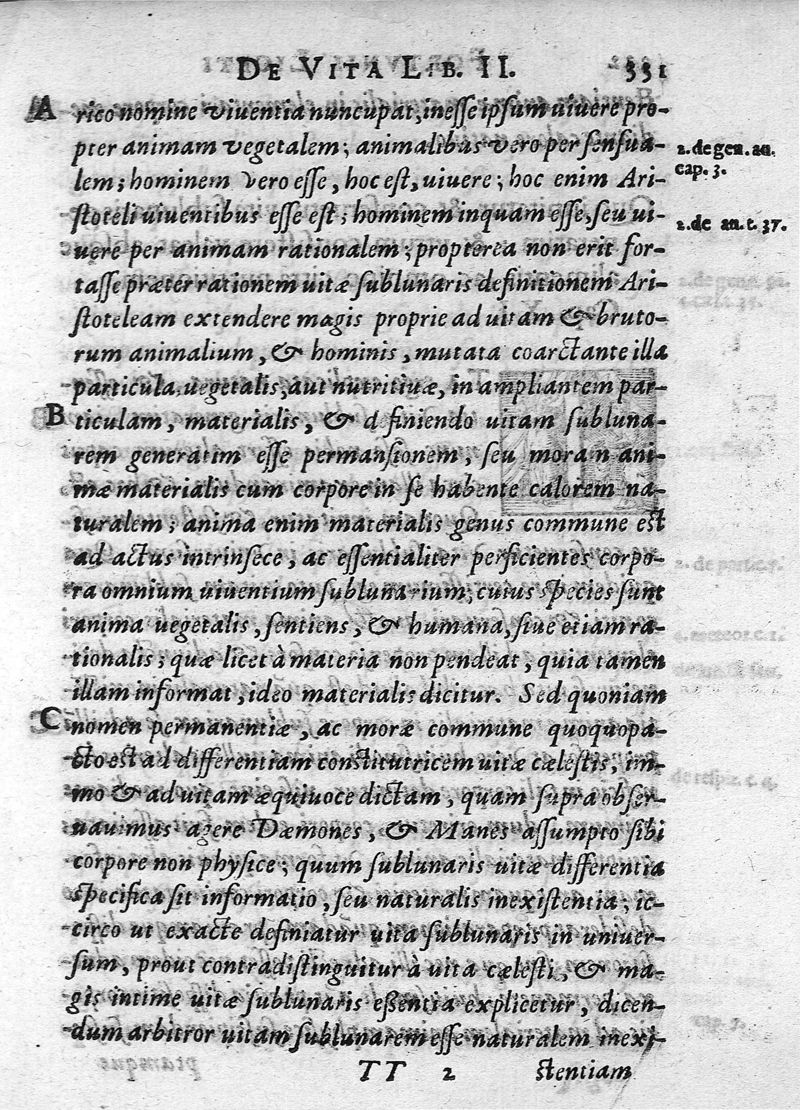 DE VITA LIB. II. 331
A rico nomine viuentia nuncupat, inesse ipsum uiuere pro-
pter animam vegetalem; animalibus vero per sensua- 2. de gen. an.
lem; hominem vero esse, hoc est, uiuere; hoc enim Ari- cap. 3.
stoteli uiuentibus esse est; hominem inquam esse, seu ui- 2. de an. t. 37.
uere per animam rationalem; propterea non erit for-
tasse præter rationem uitæ sublunaris definitionem Ari-
stoteleam extendere magis proprie ad uitam & bruto-
rum animalium, & hominis, mutata coarctante illa
particula, uegetalis, aut nutritiuæ, in ampliantem par-
B ticulam, materialis, & definiendo uitam subluna-
rem generatim esse permansionem, seu moram ani-
mæ materialis cum corpore in se habente calorem na-
turalem; anima enim materialis genus commune est
ad actus intrinsece, ac essentialiter perficientes corpo-
ra omnium uiuentium sublunarium; cuius species sunt
anima uegetalis, sentiens, & humana, siue etiam ra-
tionalis; quæ licet à materia non pendeat, quia tamen
illam informat, ideo materialis dicitur. Sed quoniam
C nomen permanentiæ, ac moræ commune quoquopa-
cto est ad differentiam constitutricem uitæ cælestis, im-
mo & ad uitam æquiuoce dictam, quam supra obser-
uauimus agere Dæmones, & Manes assumpto sibi
corpore non physice; quum sublunaris uitæ differentia
specifica sit informatio, seu naturalis inexistentia; ic-
circo ut exacte definiatur uita sublunaris in uniuer-
sum, prout contradistinguitur à uita cælesti, & ma-
gis intime uitæ sublunaris essentia explicetur, dicen-
dum arbitror uitam sublunarem esse naturalem inexi-
TT 2 stentiam